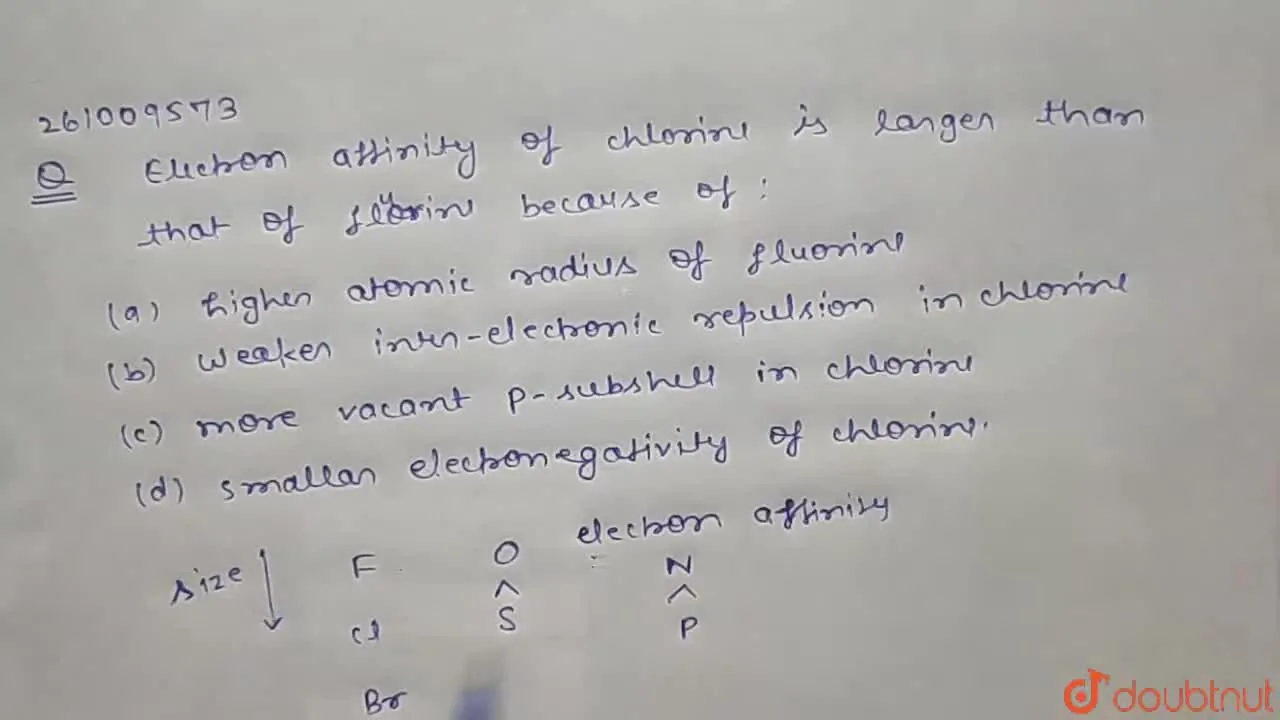 261009573
Q Electron affinity of chlorine is larger than
that of fluorine because of :
(a) higher atomic radius of fluorine
(b) weaker inter-electronic repulsion in chlorine
(c) more vacant p-subshell in chlorine
(d) smaller electronegativity of chlorine.
electron affinity
size ↓ F O N
^ ^
Cl S P
Br
doubtnut